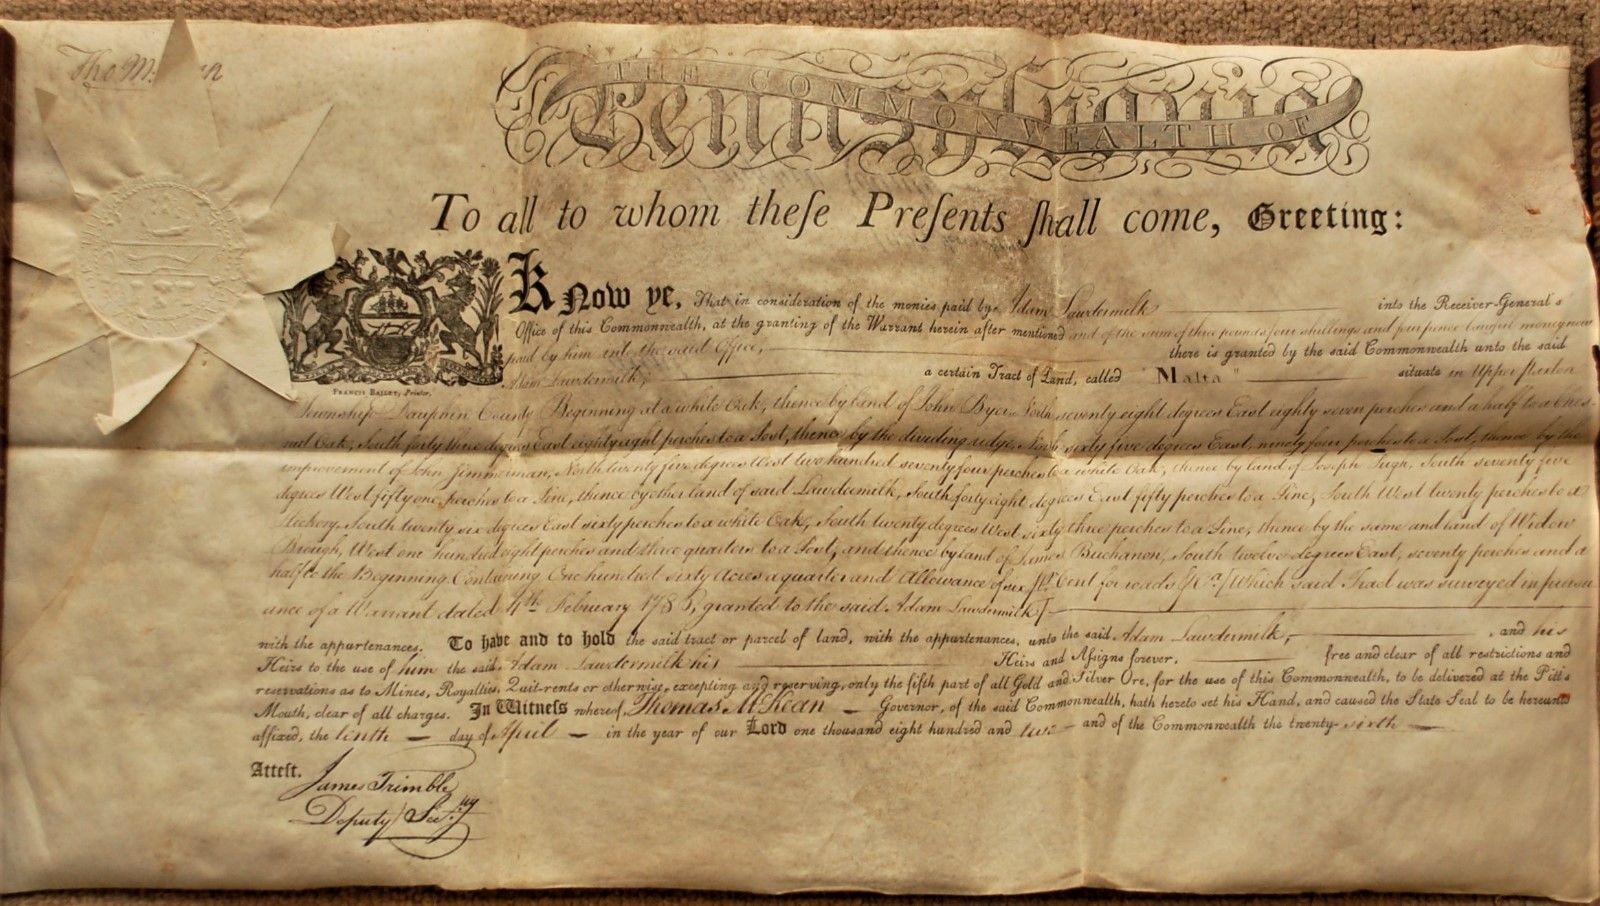 Tho M.
THE COMMONWEALTH OF
Pennsylvania
To all to whom theſe Preſents ſhall come, Greeting:
Know ye, That in consideration of the monies paid by Adam Lawdermilk into the Receiver-General's
Office of this Commonwealth, at the granting of the Warrant herein after mentioned and of the sum of three pounds four shillings and four pence lawful money now
paid by him into the said Office, there is granted by the said Commonwealth unto the said
Adam Lawdermilk, a certain Tract of Land, called "Malta" situate in Upper Paxton
FRANCIS BAILEY, Printer.
Township Dauphin County Beginning at a white Oak, thence by land of John Byer North seventy eight degrees East eighty seven perches and a half to a Ches-
nut Oak, South forty three degrees East eighty eight perches to a Post, thence by the dividing ridge, North sixty five degrees East, ninety four perches to a Post, thence by the
improvement of John Zimmerman, North twenty five degrees West two hundred seventy four perches to a white Oak, thence by land of Joseph Pugh, South seventy five
degrees West fifty one perches to a Pine, thence by other land of said Lawdermilk, South forty eight degrees East fifty perches to a Pine, South West twenty perches to a
Hickory, South twenty six degrees East sixty perches to a white Oak, South twenty degrees West sixty three perches to a Pine, thence by the same and land of Widow
Brough, West one hundred eight perches and three quarters to a Post, and thence by land of James Buchanon, South twelve degrees East, seventy perches and a
half to the Beginning. Containing One hundred sixty Acres a quarter and Allowance of six P Cent for roads &ca. [Which said Tract was surveyed in pursu
ance of a Warrant dated 4th February 1785, granted to the said Adam Lawdermilk]
with the appurtenances. To have and to hold the said tract or parcel of land, with the appurtenances, unto the said Adam Lawdermilk, , and his
Heirs to the use of him the said Adam Lawdermilk his Heirs and Aſsigns forever, free and clear of all restrictions and
reservations as to Mines, Royalties, Quit-rents or otherwise, excepting and reserving, only the fifth part of all Gold and Silver Ore, for the use of this Commonwealth, to be delivered at the Pitt's
Mouth, clear of all charges. In Witneſs whereof, Thomas McKean Governor, of the said Commonwealth, hath hereto set his Hand, and caused the State Seal to be hereunto
affixed, the tenth day of April in the year of our Lord one thousand eight hundred and two and of the Commonwealth the twenty-sixth
Atteſt.
James Trimble
Deputy Secty